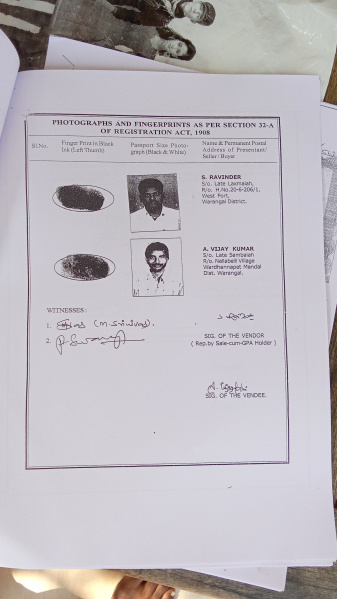 PHOTOGRAPHS AND FINGERPRINTS AS PER SECTION 32-A
OF REGISTRATION ACT, 1908
Sl.No.
Finger Print in Black
Ink (Left Thumb)
Passport Size Photo-
graph (Black & White)
Name & Permanent Postal
Address of Presentant/
Seller / Buyer
S. RAVINDER
S/o. Late Laxmaiah,
R/o. H.No.20-6-206/1,
West Fort,
Warangal District.
A. VIJAY KUMAR
S/o. Late Sambaiah
R/o. Nallabelli Village
Wardhannapet Mandal
Dist. Warangal.
WITNESSES:
1.
2.
SIG. OF THE VENDOR
( Rep.by Sale-cum-GPA Holder )
SIG. OF THE VENDEE.